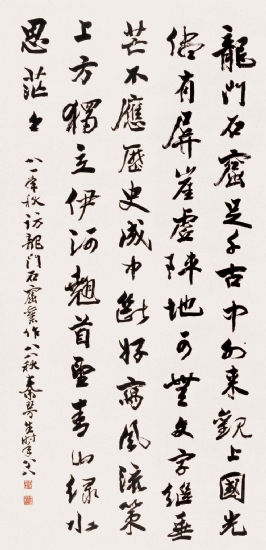 龍門石窟足千古中外來觀上國光
儘有屏崖虛陣地可無文字繼垂
芒不應歷史成中斷好寫風流策
上方獨立伊河翹首望青山綠水
思茫茫
八一年秋訪龍門石窟舊作八八秋秦萼生時年八八